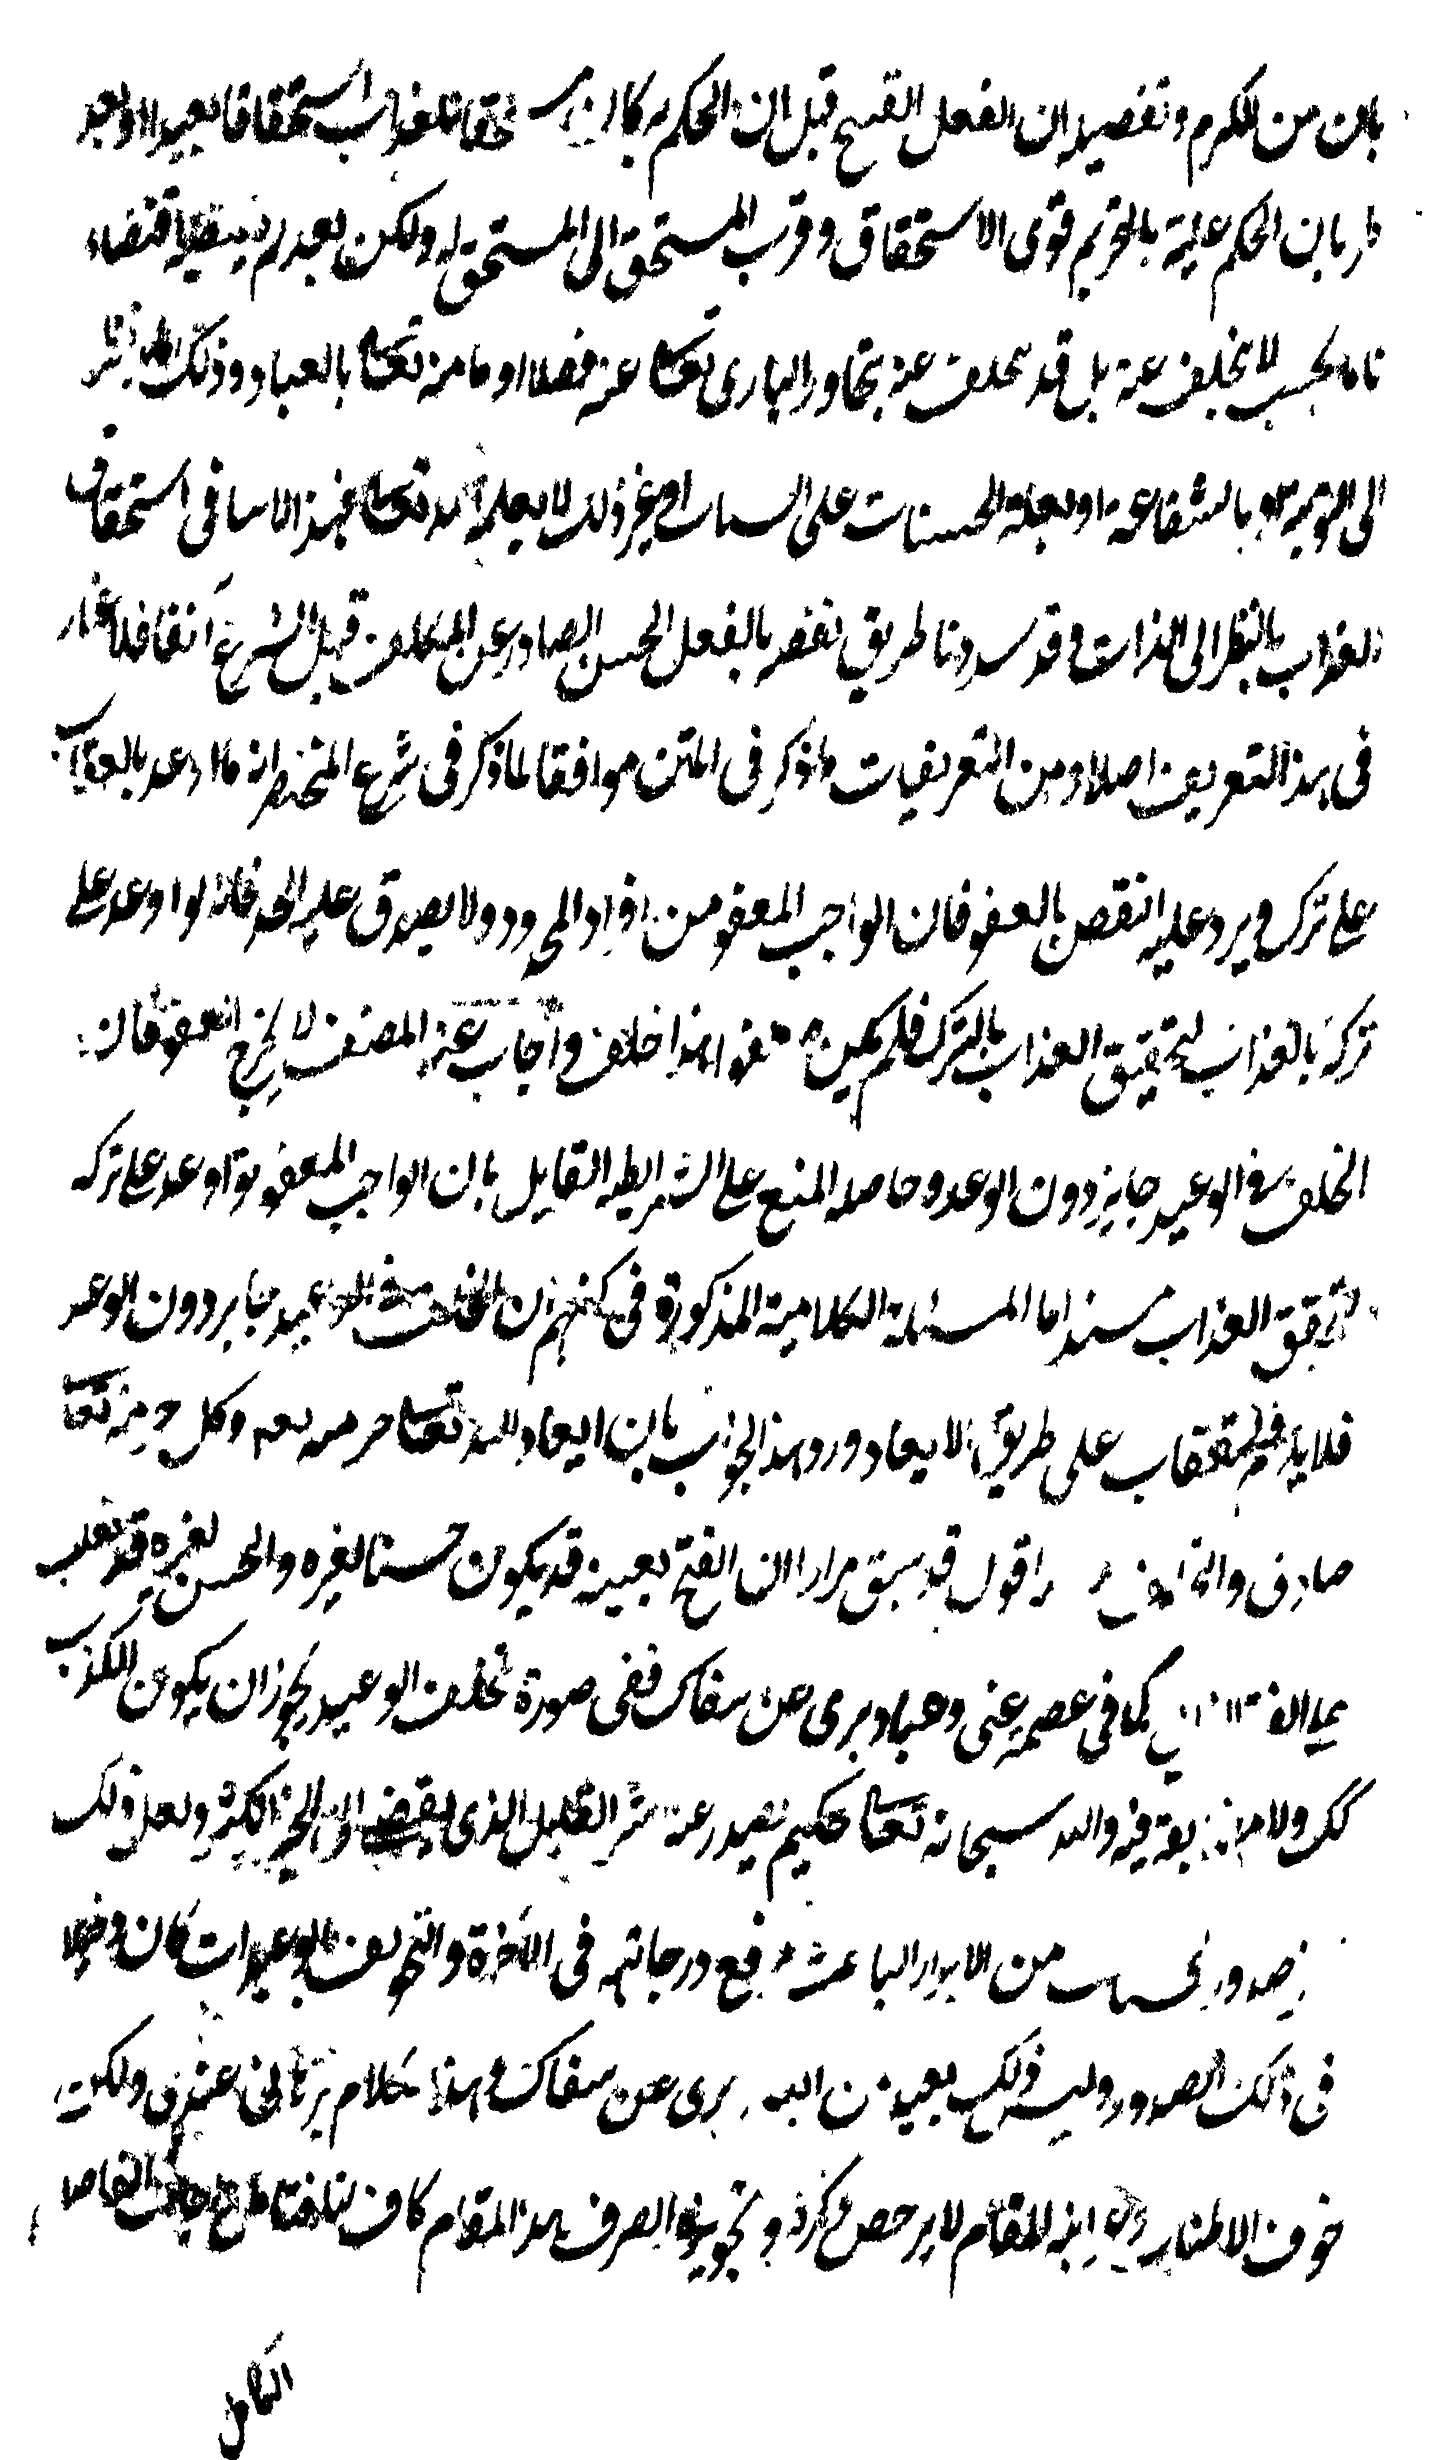 بان من الكرم وتفصيله ان الفعل القبيح قبل ان الحكم به كان مستحقا للعذاب استحقاقا بعيدا وبعد
طريان الحكم عليه بالتحريم قوى الاستحقاق وقرب المستحق الى المستحق له ولكن بعد لم يقتضه اقتضاء
تاما بحسب لا يتخلف عنه بل قد يتخلف عنه بتجاوز البارى تعالى عنه فضلا او منه تعالى بالعباد وذلك
الى التوبة او بالشفاعة او بغلبة الحسنات على السيات او غير ذلك لا يعلمه الا الله تعالى فهذا لا ينافى استحقاق
العذاب بالنظر الى الذات وقد سددنا طريق نقضه بالفعل الحسن الصادر عن المكلف قبل الشرع آنفا فلا غبار
فى هذا التعريف اصلا ومن التعريفات ما ذكر فى المتن موافقا لما ذكر فى شرح المختصر انه ما اوعد بالعقاب
على تركه ويرد عليه النقض بالعفو فان الواجب المعفو من افراد المحدود ولا يصدق عليه الحد فانه لو اوعد على
تركه بالعذاب لتحقق العذاب بالترك فلم يكن معفوا هذا خلف واجاب عنه المصنف لا يخرج العفو فان
الخلف فى الوعيد جايز دون الوعد وحاصله المنع على الشرطية القايل بان الواجب المعفو لو اوعد على تركه
لتحقق العذاب مسندا بالمسئلة الكلامية المذكورة فى كتبهم ان الخلف فى الوعيد جايز دون الوعد
فلا يلزم العقاب على طريق الايعاد ورد هذا الجواب بان ايعاد الله تعالى خبر منه وكل خبر منه تعالى
صادق والخلف اقول قد سبق مرارا ان القبح بعينه قد يكون حسنا لغيره والحسن لغيره قد يغلب
على القبح كما فى عصمة نبى وعباد برى عن سفاك ففى صورة تخلف الوعيد يجوز ان يكون الكذب
كك ولا فيه والله سبحانه تعالى حكيم يصدر عنه شر القليل الذى يفضى الى الخير الكثير ولعل ذلك
صدور الحسنات من الابرار الباعث رفع درجاتهم فى الآخرة والتخويف بالوعيدات كان دخيلا
فى ذلك الصدور وليس ذلك ببعيد من برى عن سفاك وهذا كلام برهانى عندى ولكن
خوف الاطناب فى هذا المقام لا يرخص ذكره وتجويز الصرف هذا المقام كاف
الكامل